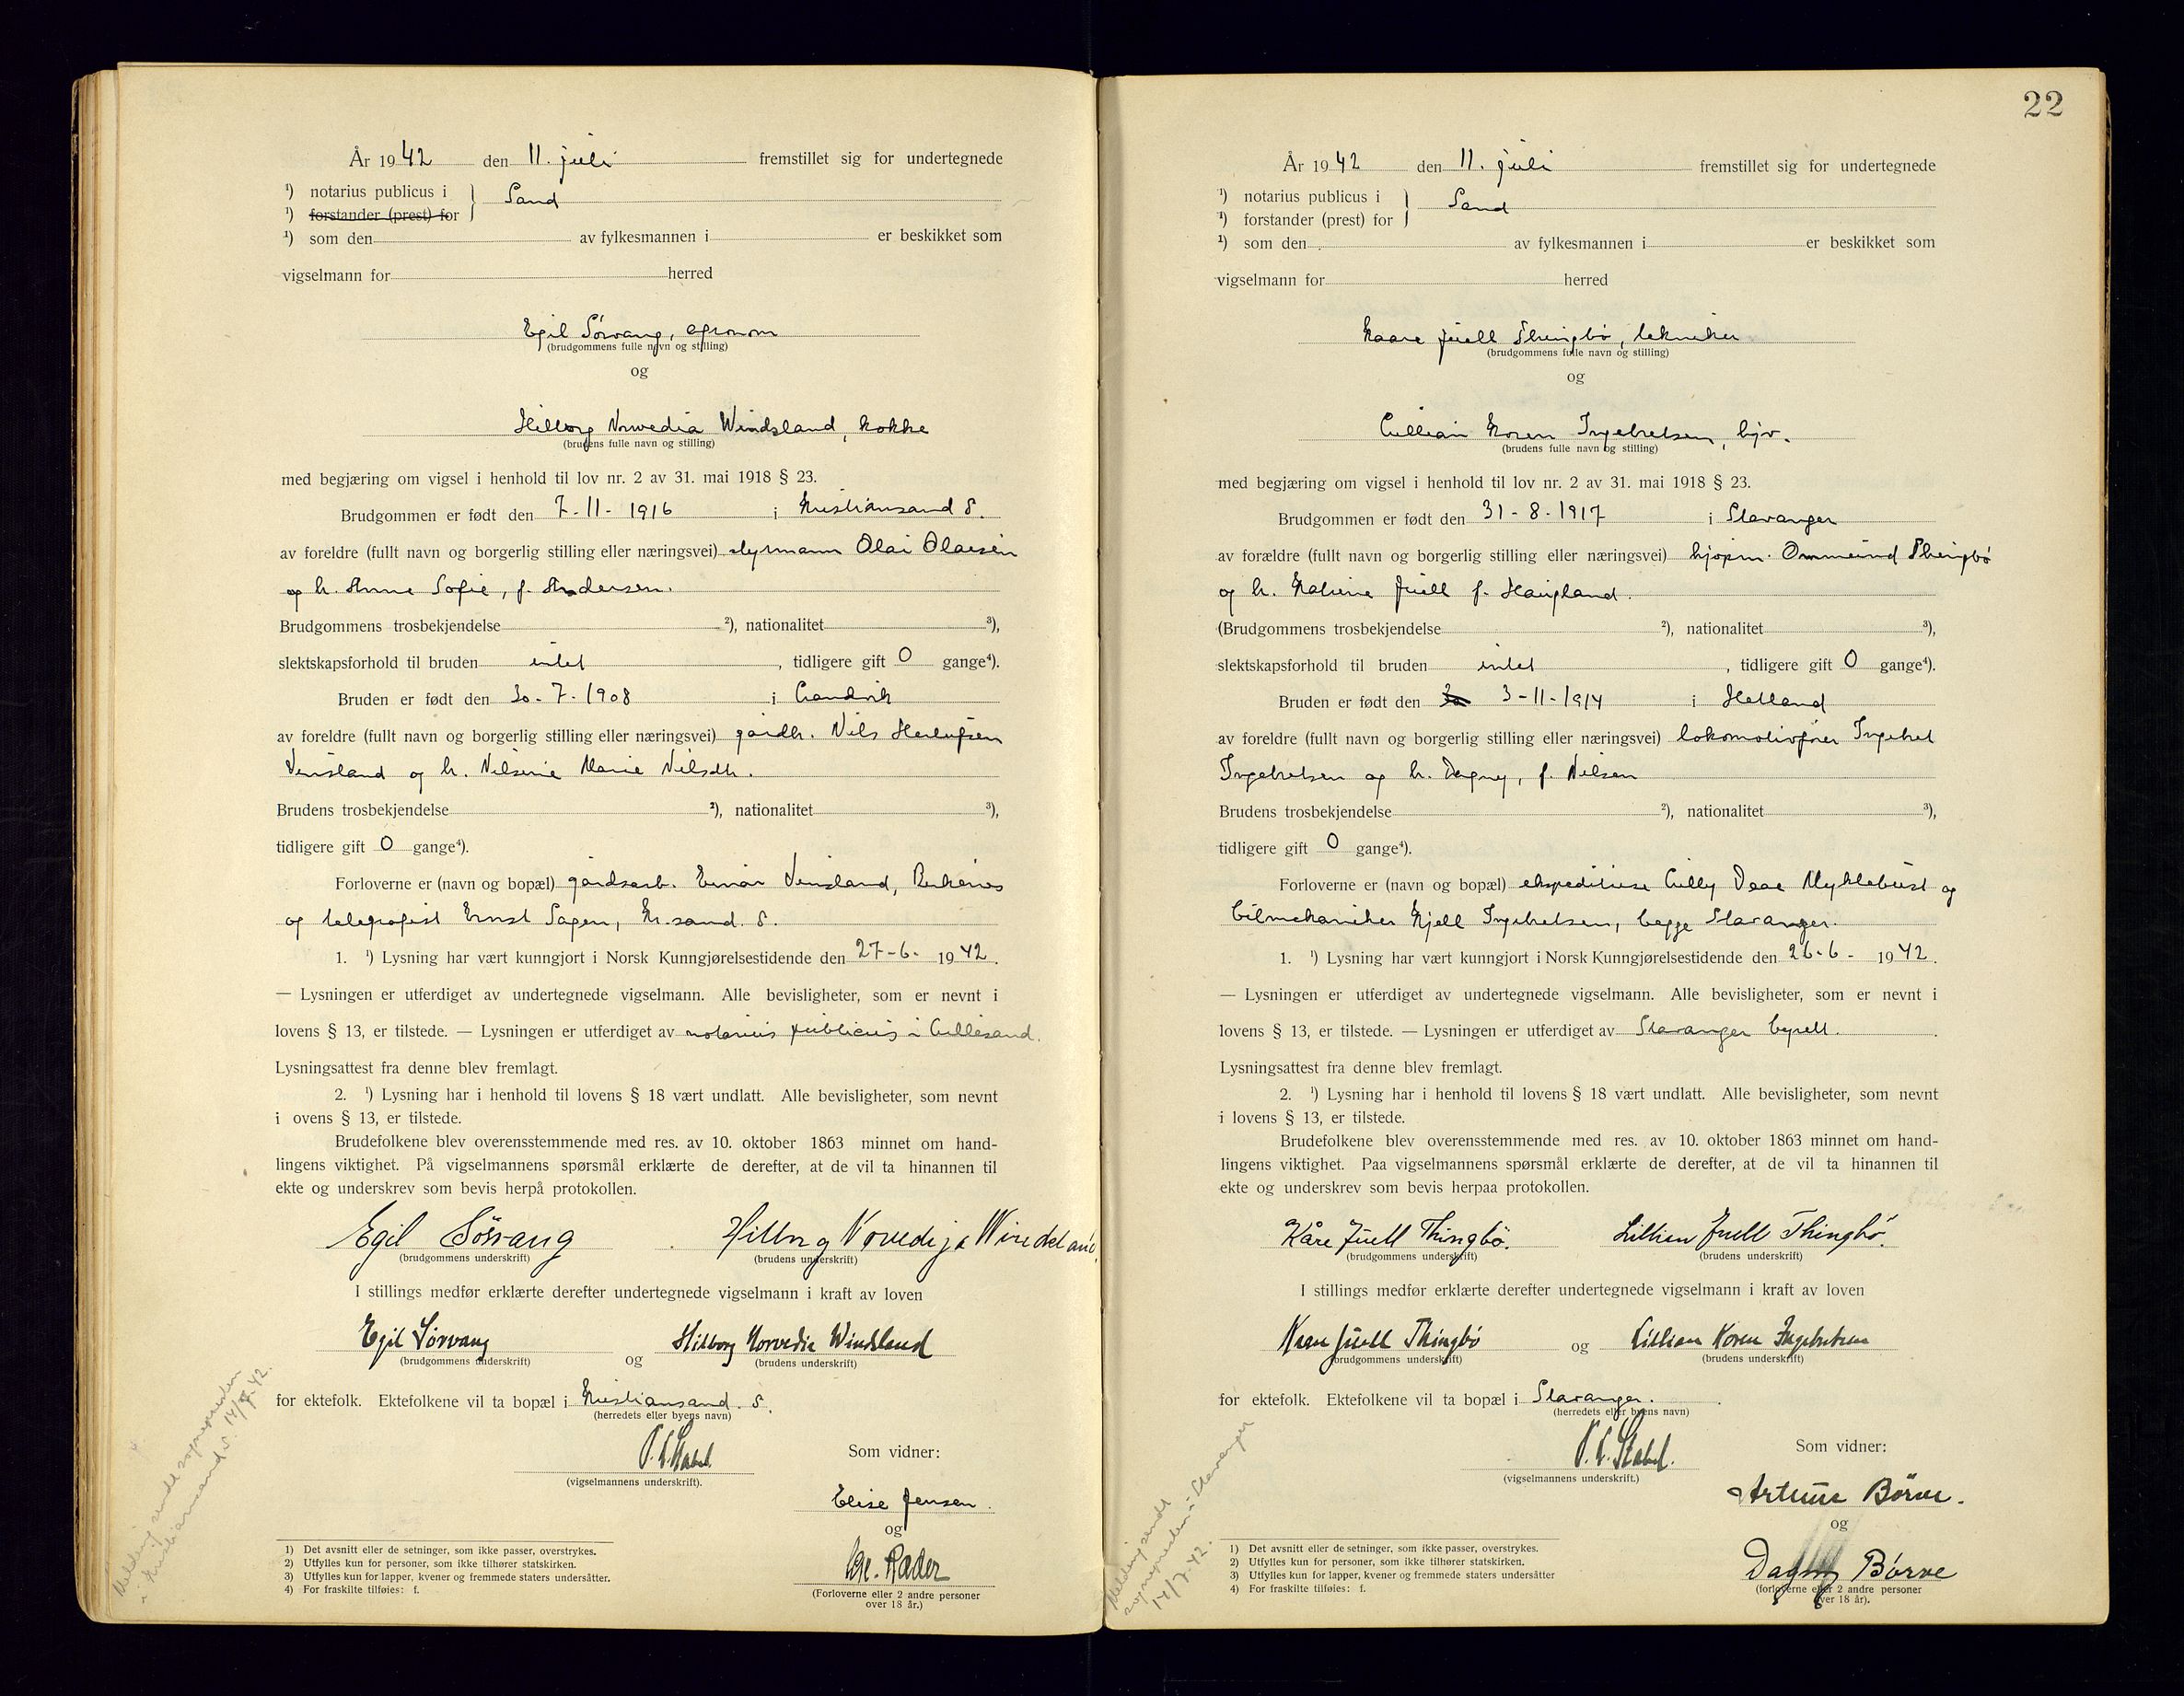 År 1942 den 11. juli fremstillet sig for undertegnede
¹) notarius publicus i
¹) forstander (prest) for
Sand
¹) som den av fylkesmannen i er beskikket som
vigselmann for herred
Egil Sörvang, agronom
(brudgommens fulle navn og stilling)
og
Hilborg Norvedia Windsland, kokke
(brudens fulle navn og stilling)
med begjæring om vigsel i henhold til lov nr. 2 av 31. mai 1918 § 23.
Brudgommen er født den 7-11-1916 i Kristiansand S.
av foreldre (fullt navn og borgerlig stilling eller næringsvei) styrmann Olai Olaisen
og h. Anne Sofie, f. Andersen.
Brudgommens trosbekjendelse ²), nationalitet ³),
slektskapsforhold til bruden intet, tidligere gift 0 gange⁴).
Bruden er født den 30-7-1908 i
av foreldre (fullt navn og borgerlig stilling eller næringsvei) gårdbr. Nils Herlufsen
Vinsland og h. Nilsine Marie Nilsdtr.
Brudens trosbekjendelse ²), nationalitet ³),
tidligere gift 0 gange⁴).
Forloverne er (navn og bopæl) gårdsarb. Einar Vinsland, Birkenes
og telegrafist Ernst Sagen, Kr.sand. S.
1. ¹) Lysning har vært kunngjort i Norsk Kunngjørelsestidende den 27-6- 1942.
— Lysningen er utferdiget av undertegnede vigselmann. Alle bevisligheter, som er nevnt i
lovens § 13, er tilstede. — Lysningen er utferdiget av notarius publicus i Lillesand.
Lysningsattest fra denne blev fremlagt.
2. ¹) Lysning har i henhold til lovens § 18 vært undlatt. Alle bevisligheter, som nevnt
i ovens § 13, er tilstede.
Brudefolkene blev overensstemmende med res. av 10. oktober 1863 minnet om hand-
lingens viktighet. På vigselmannens spørsmål erklærte de derefter, at de vil ta hinannen til
ekte og underskrev som bevis herpå protokollen.
Egil Sörvang Hilborg Norvedija Windsland
(brudgommens underskrift) (brudens underskrift)
I stillings medfør erklærte derefter undertegnede vigselmann i kraft av loven
Egil Sörvang og Hilborg Norvedia Windsland
(brudgommens underskrift) (brudens underskrift)
for ektefolk. Ektefolkene vil ta bopæl i Kristiansand. S.
(herredets eller byens navn)
Som vidner:
(vigselmannens underskrift).
Elise Jensen.
og
Rader
(Forloverne eller 2 andre personer
over 18 år.)
1) Det avsnitt eller de setninger, som ikke passer, overstrykes.
2) Utfylles kun for personer, som ikke tilhører statskirken.
3) Utfylles kun for lapper, kvener og fremmede staters undersåtter.
4) For fraskilte tilføies: f.
Melding sendt sognepresten
i Kristiansand S. 14/7.42.
22
År 1942 den 11. juli fremstillet sig for undertegnede
¹) notarius publicus i
¹) forstander (prest) for
Sand
¹) som den av fylkesmannen i er beskikket som
vigselmann for herred
Kaare Juell Thingbö, tekniker
(brudgommens fulle navn og stilling)
og
Lillian Koren Ingebretsen, hjv.
(brudens fulle navn og stilling)
med begjæring om vigsel i henhold til lov nr. 2 av 31. mai 1918 § 23.
Brudgommen er født den 31-8-1917 i Stavanger
av forældre (fullt navn og borgerlig stilling eller næringsvei) kjøpm. Ommund Thingbö
og h. Katrine Juell f. Haugland.
(Brudgommens trosbekjendelse ²), nationalitet ³),
slektskapsforhold til bruden intet, tidligere gift 0 gange⁴).
Bruden er født den 3-11-1914 i Hetland
av foreldre (fullt navn og borgerlig stilling eller næringsvei) lokomotivfører Ingebret
Ingebretsen og h. Dagny, f. Nilsen
Brudens trosbekjendelse ²), nationalitet ³),
tidligere gift 0 gange⁴).
Forloverne er (navn og bopæl) ekspeditrise Lilly Myklebust og
bilmekaniker Kjell Ingebretsen, begge Stavanger.
1. ¹) Lysning har vært kunngjort i Norsk Kunngjørelsestidende den 26-6- 1942.
— Lysningen er utferdiget av undertegnede vigselmann. Alle bevisligheter, som er nevnt i
lovens § 13, er tilstede. — Lysningen er utferdiget av Stavanger byrett.
Lysningsattest fra denne blev fremlagt.
2. ¹) Lysning har i henhold til lovens § 18 vært undlatt. Alle bevisligheter, som nevnt
i lovens § 13, er tilstede.
Brudefolkene blev overensstemmende med res. av 10. oktober 1863 minnet om hand-
lingens viktighet. Paa vigselmannens spørsmål erklærte de derefter, at de vil ta hinannen til
ekte og underskrev som bevis herpaa protokollen.
Kåre Juell Thingbö. Lillian Juell Thingbö.
(brudgommens underskrift) (brudens underskrift)
I stillings medfør erklærte derefter undertegnede vigselmann i kraft av loven
Kaare Juell Thingbö og Lillian Koren Ingebretsen
(brudgommens underskrift) (brudens underskrift)
for ektefolk. Ektefolkene vil ta bopæl i Stavanger.
(herredets eller byens navn)
Som vidner:
(vigselmannens underskrift.)
Børve.
og
Dagny Børve
(forloverne eller 2 andre personer
over 18 år).
1) Det avsnitt eller de setninger, som ikke passer, overstrykes.
2) Utfylles kun for personer, som ikke tilhører statskirken.
3) Utfylles kun for lapper, kvener og fremmede staters undersåtter
4) For fraskilte tilføies: f.
Melding sendt
sognepresten i Stavanger
14/7.42.